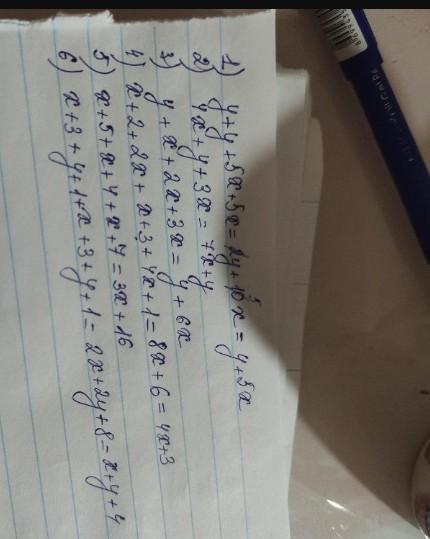 1) y+y+5x+5x=2y+10x=y+5x
2) 4x+y+3x=7x+y
3) y+x+2x+3x=y+6x
4) x+2+2x+x+3+4x+1=8x+6=4x+3
5) x+5+x+4+x+7=3x+16
6) x+3+y+1+x+3+y+1=2x+2y+8=x+y+4